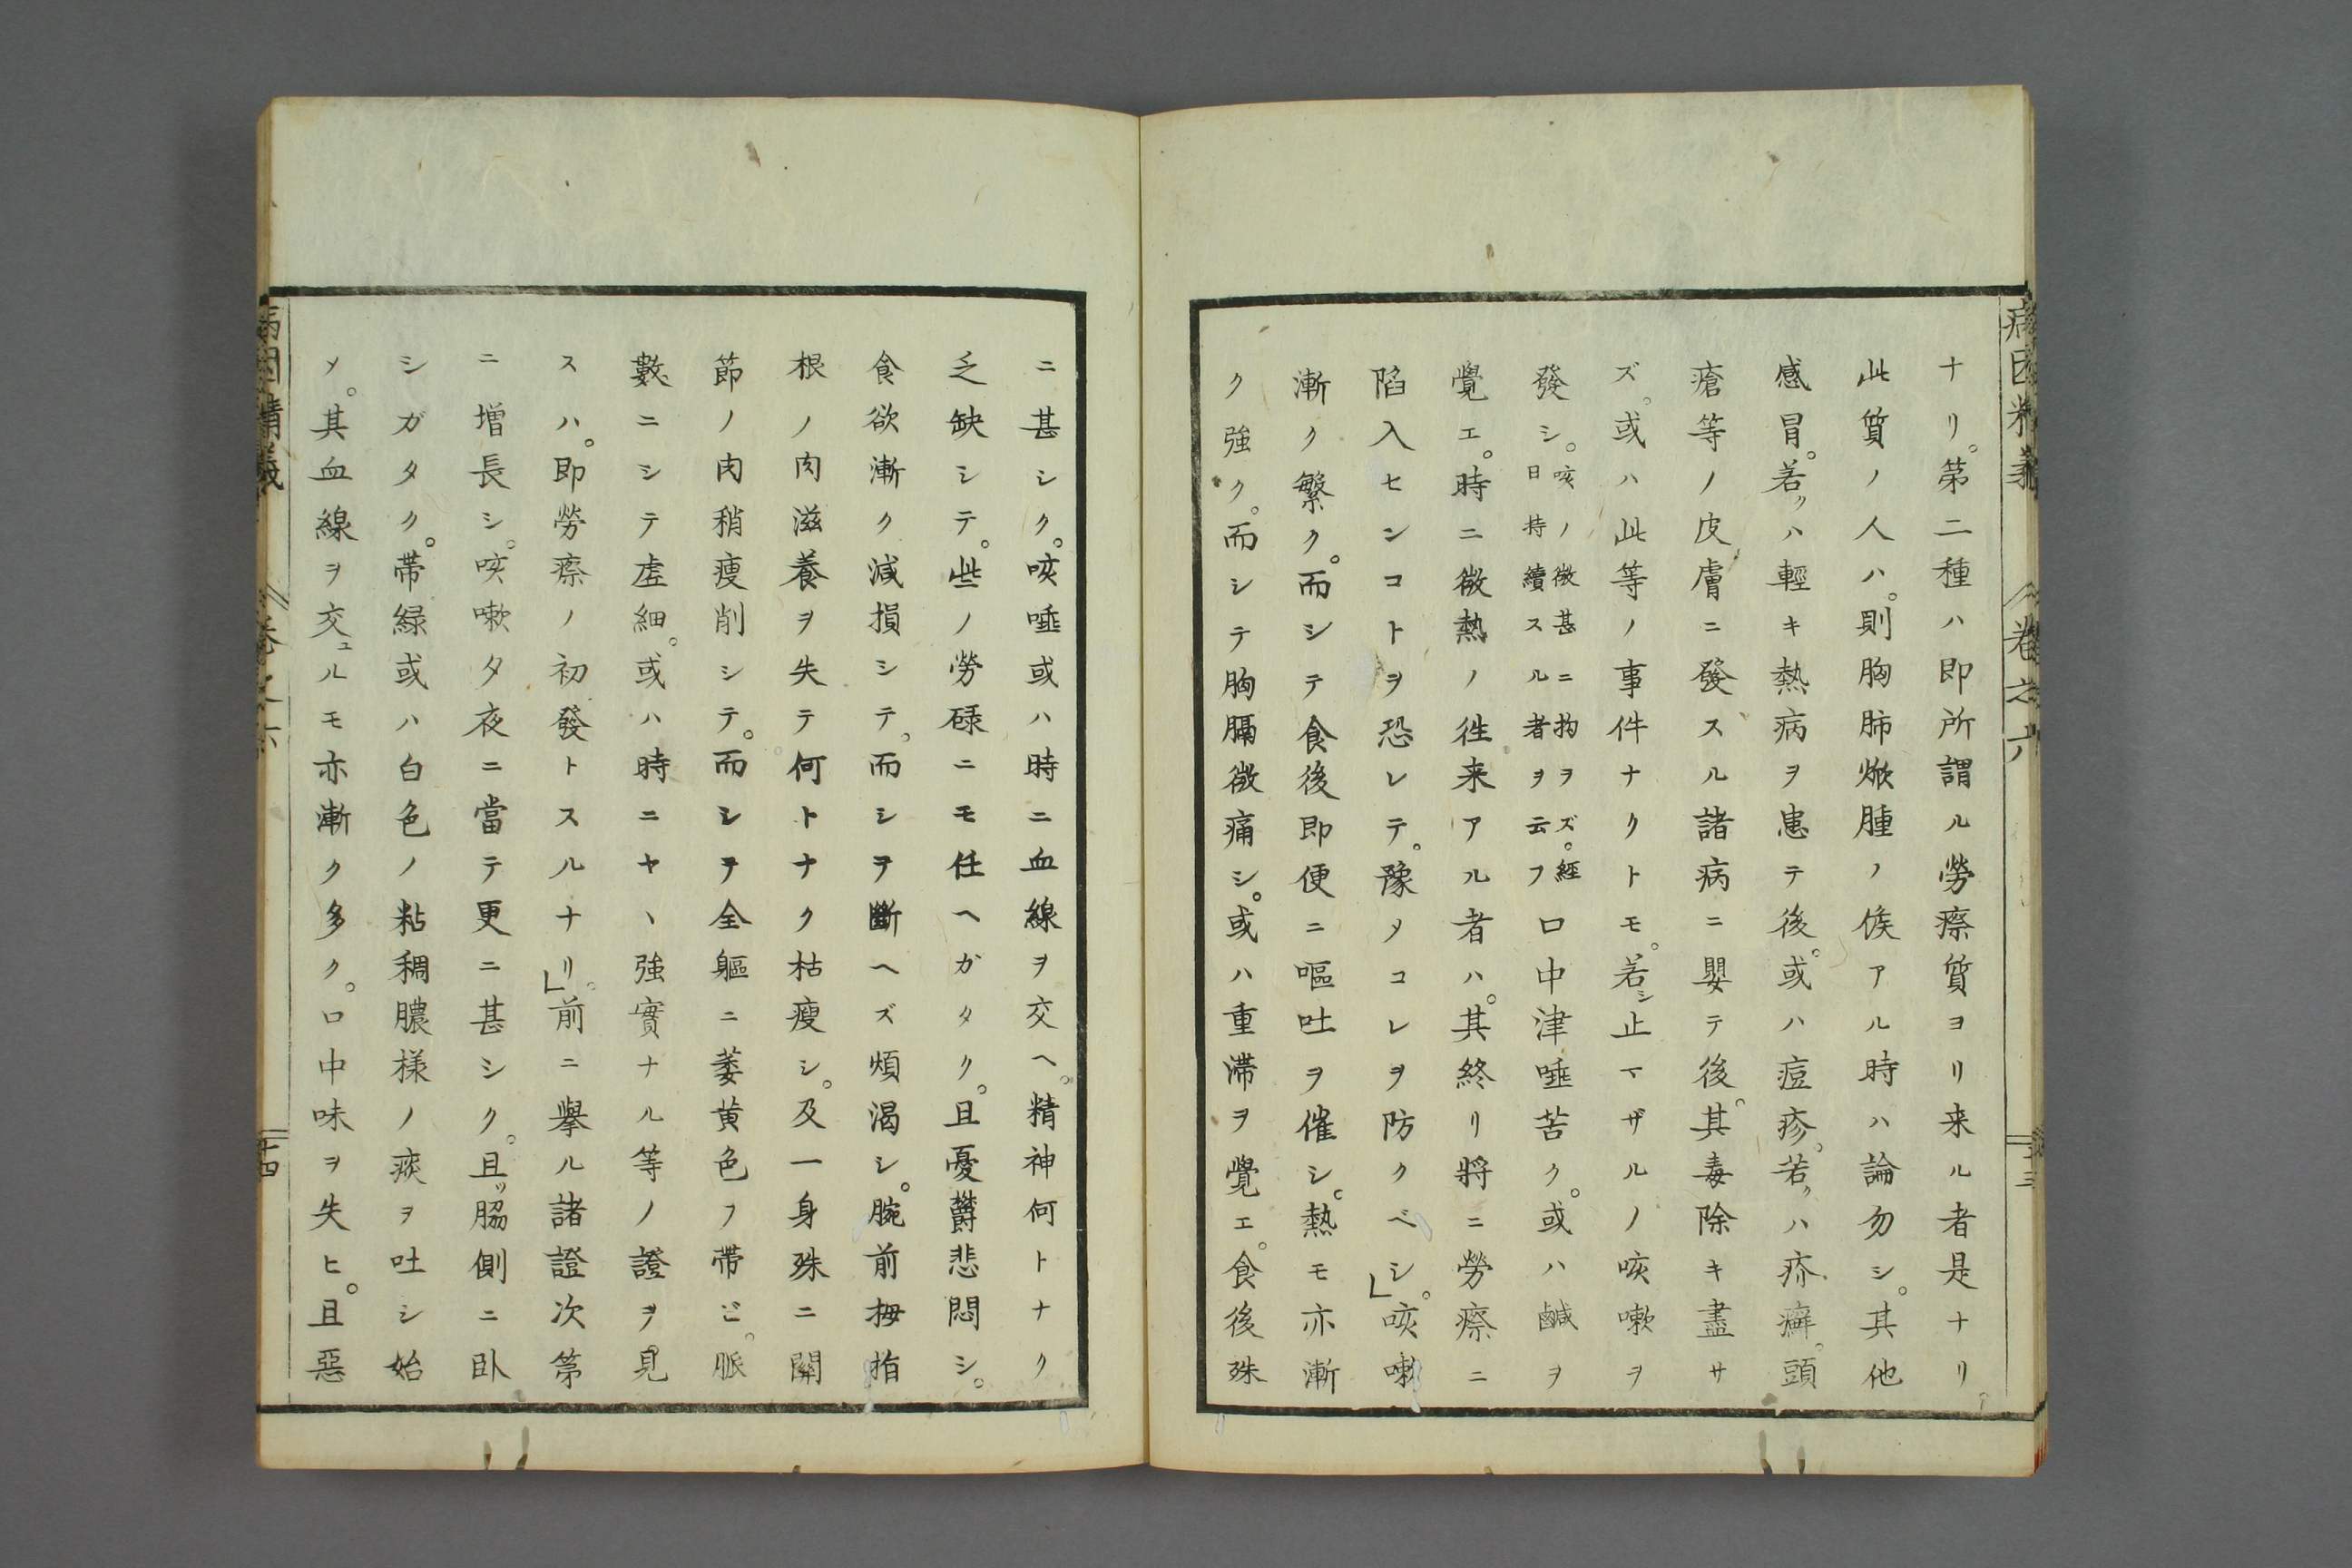 病因精義 卷之六 十三
ナリ。第二種ハ即所謂ル勞瘵質ヨリ来ル者是ナリ
此質ノ人ハ。則胸肺焮腫ノ候アル時ハ論勿シ。其他
感冒。若クハ輕キ熱病ヲ患テ後。或ハ痘疹。若クハ疥癬。頭
瘡等ノ皮膚ニ發スル諸病ニ嬰テ後。其毒除キ盡サ
ズ。或ハ此等ノ事件ナクトモ。若シ止マザルノ咳嗽ヲ
發シ。咳ノ微甚ニ拘ヲズ。經日持續スル者ヲ云フ口中津唾苦ク。或ハ鹹ヲ
覺エ。時ニ微熱ノ徃来アル者ハ。其終リ將ニ勞瘵ニ
陷入センコトヲ恐レテ。豫メコレヲ防クベシ。」咳嗽
漸ク繁ク。而シテ食後即便ニ嘔吐ヲ催シ。熱モ亦漸
ク強ク。而シテ胸膈微痛シ。或ハ重滞ヲ覺エ。食後殊
ニ甚シク。咳唾或ハ時ニ血線ヲ交ヘ。精神何トナク
乏缺シテ。些ノ勞碌ニモ任ヘガタク。且憂欝悲悶シ。
食欲漸ク減損シテ。而シヲ斷ヘズ煩渴シ。腕前拇指
根ノ肉滋養ヲ失テ何トナク枯瘦シ。及一身殊ニ關
節ノ肉稍瘦削シテ。而シヲ全軀ニ萎黄色フ帶ビ。脈
數ニシテ虚細。或ハ時ニヤヽ強實ナル等ノ證ヲ見
スハ。即勞瘵ノ初發トスルナリ。」前ニ擧ル諸證次第
ニ增長シ。咳嗽夕夜ニ當テ更ニ甚シク。且ツ脇側ニ臥
シガタク。帶緑或ハ白色ノ粘稠膿様ノ痰ヲ吐シ始
メ。其血線ヲ交ユルモ亦漸ク多ク。口中味ヲ失ヒ。且惡
病因精義 卷之六 十四